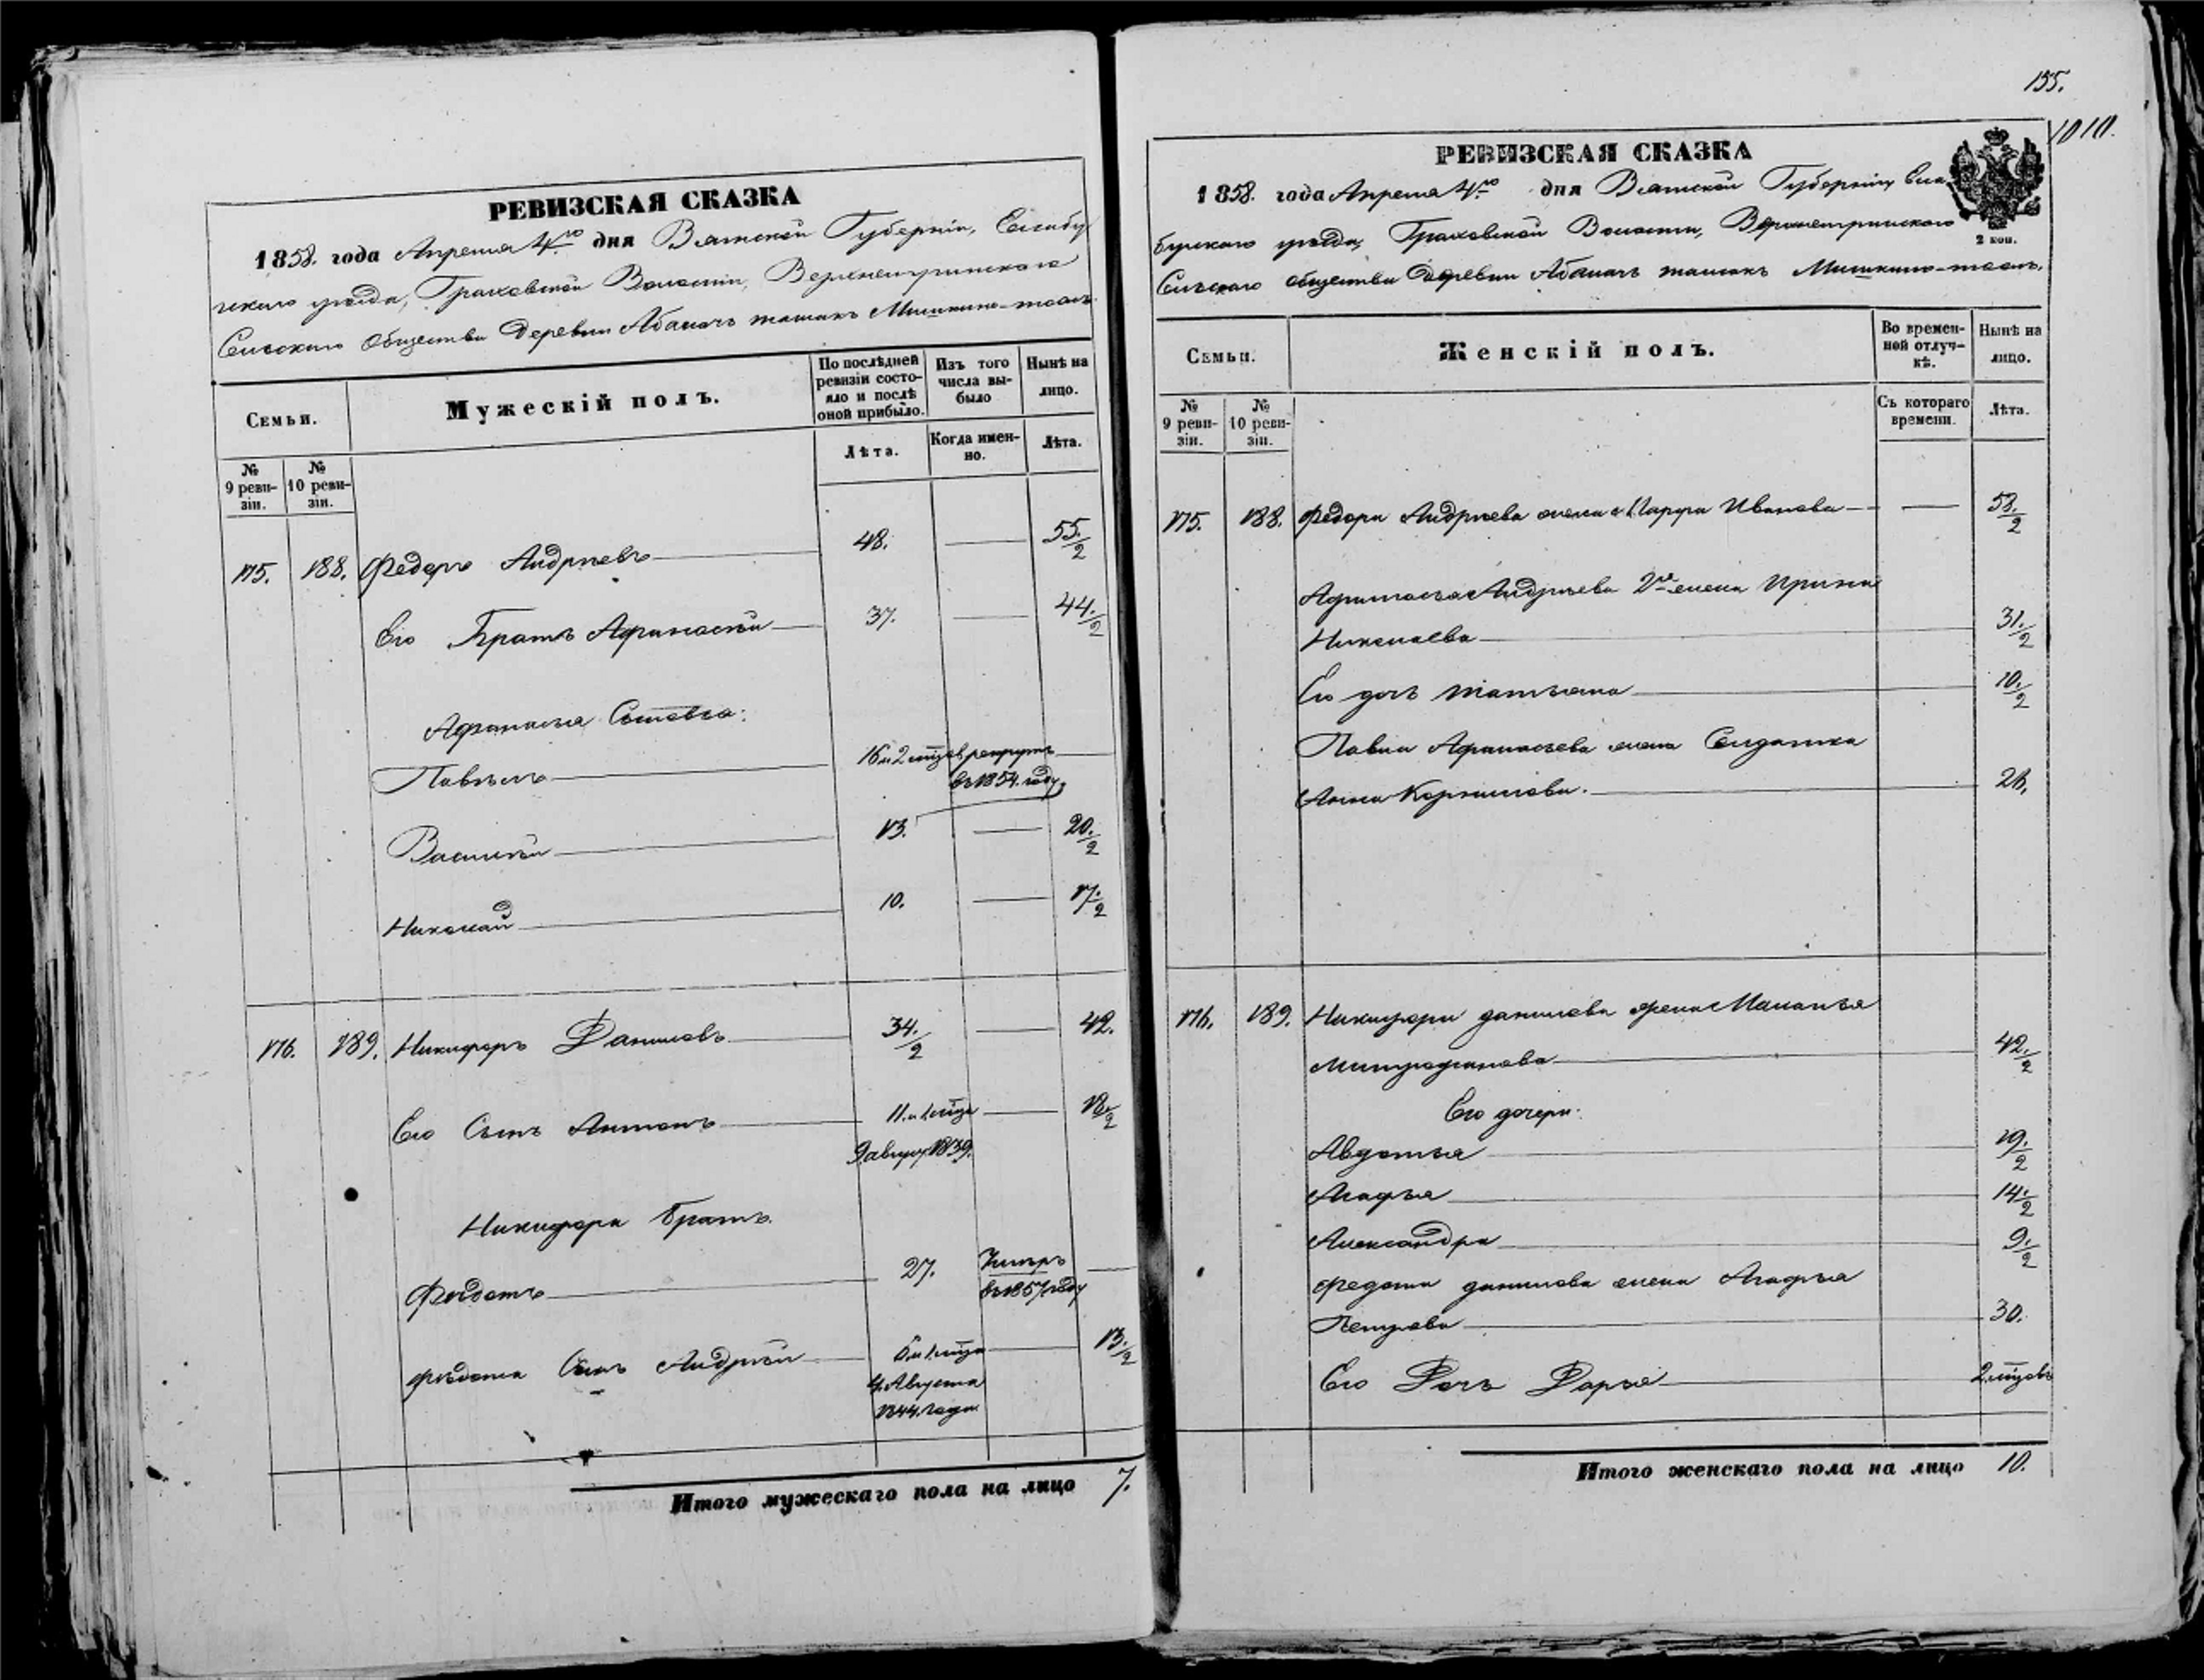 РЕВИЗСКАЯ СКАЗКА
1858. года Апреля 4го дня Вятской Губерніи, Елабу
жскаго уѣзда, Граховской Волости,
Сельскаго Общества Деревни
Семьи.
Мужескій полъ.
По послѣдней ревизіи состояло и послѣ оной прибыло.
Изъ того числа выбыло
Нынѣ на лицо.
№ 9 ревизіи.
№ 10 ревизіи.
Лѣта.
Когда именно.
Лѣта.
175. 188. Федоръ Андрѣевъ 48. 55./2
Его Братъ Афанасій 37. 44./2
Афанасья Сыновья:
Павелъ 16 и 2 мѣсцов рекрутъ
въ 1854. году
Василій 13. 20./2
Николай 10. 17./2
176. 189. Никифоръ Даниловъ 34./2 42.
Его Сынъ Антонъ 11. и 1. мѣсца 18./2
9 август. 1839.
Никифора братъ.
Федотъ 27. Умеръ
въ 1857 году
Федота Сынъ Андрѣй 6 и 1. мѣсца 13./2
4. Августа
1844. года
Итого мужескаго пола на лицо 7.
155.
1010.
РЕВИЗСКАЯ СКАЗКА
1858. года Апреля 4го дня Вятской Губерніи Ела
бужскаго уѣзда, Граховской Волости,
Сельскаго общества Деревни
2 коп.
Семьи.
Женскій полъ.
Во временной отлучкѣ.
Нынѣ на лицо.
№ 9 ревизіи.
№ 10 ревизіи.
Съ котораго времени.
Лѣта.
175. 188. Федора Андрѣева жена Марфа Иванова 58./2
Афанасья Андрѣева 2я жена Ирина
Николаева 31./2
Его дочь Татьяна 10./2
Павла Афанасьева жена Солдатка
Анна Корнилова. 26.
176. 189. Никифора Данилова жена Маланья
Митрофанова 42./2
Его дочери:
Авдотья 19./2
Агафья 14./2
Александра 9./2
Федота Данилова жена Агафья
Петрова 30.
Его Дочь Дарья 2. мѣсцовъ
Итого женскаго пола на лицо 10.